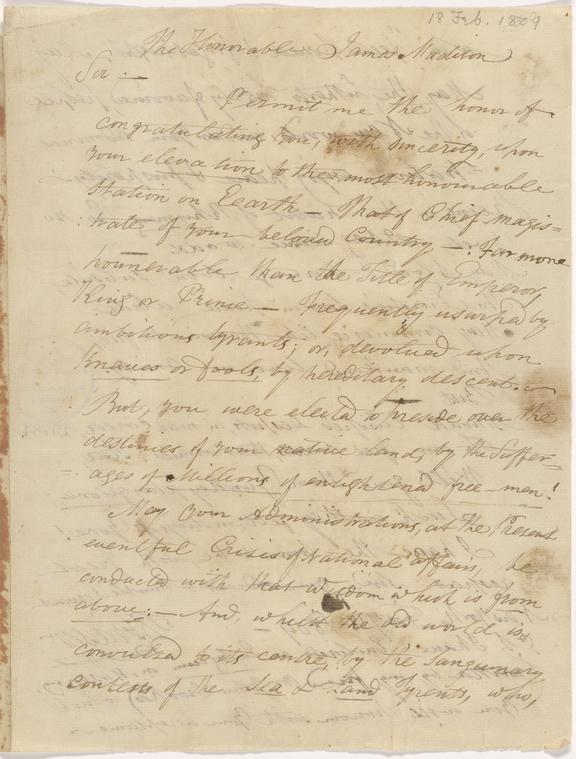 18 Feb. 1809
The Honorable James Madison
Sir:—
Permit me the honor of
congratulating you, with sincerity, upon
your elevation to the most honourable
Station on Eearth — that of Chief Magis=
:trate of your beloved Country —. Far more
hounerable than the Title of Emperor,
King or Prince — Frequently usurped by
ambitious tyrants; or, devolved upon
Knaves or fools, by hereditary descent.—
But, you were elected to preside over the
destinies of your native land, by the Suffer=
=ages of Millions of enlightened free-men!
May your Administrations, at the Present
eventful Crisis of National affairs, be
conducted with that wisdom which is from
above:— And, whilst the old world is
convulsed to its centre, by the sanguinary
contests of the Sea & Land Tyrents, who,